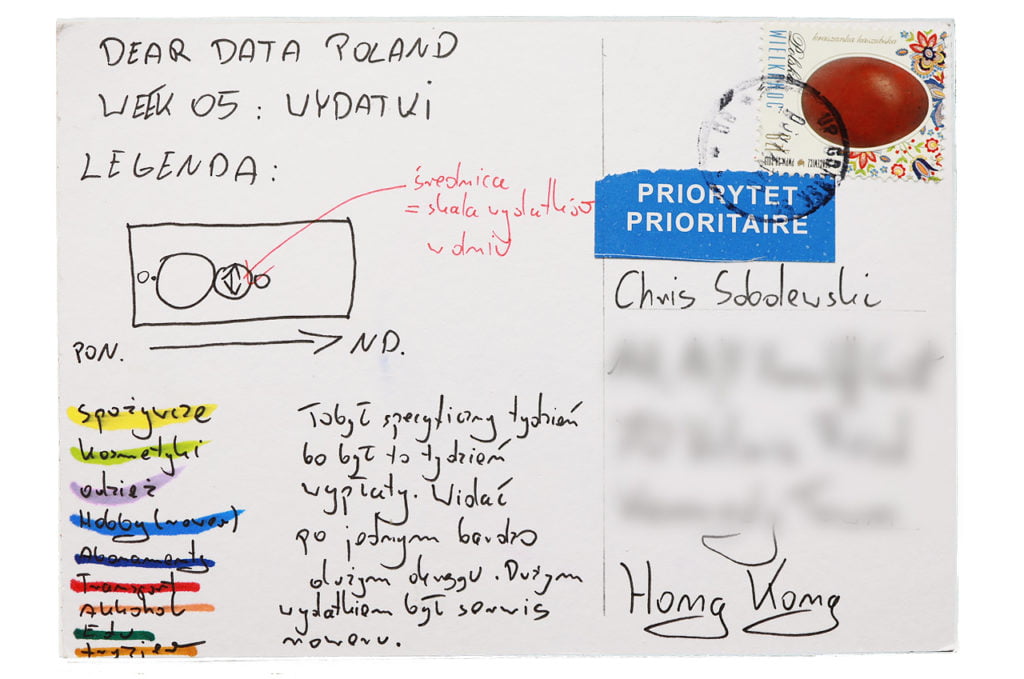 DEAR DATA POLAND
WEEK 05: WYDATKI
LEGENDA:
średnica
= skala wydatków
w dniu
PON.
ND.
Spożywcze
Kosmetyki
odzież
Hobby (rower)
Abonamenty
Transport
Alkohol
Edu
fryzjer
To był specyficzny tydzień
bo był to tydzień
wypłaty. Widać
po jednym bardzo
dużym okręgu. Dużym
wydatkiem był serwis
roweru.
kraszanka kaszubska
Polska
WIELKANOC
PRIORYTET
PRIORITAIRE
Chris Sobolewski
Hong Kong